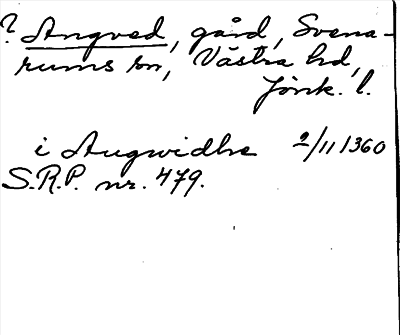 ? Angved, gård, Svena-
rums sn, Västra hd,
Jönk. l.
i Augwidhe 2/11 1360
S.R.P. nr. 479.